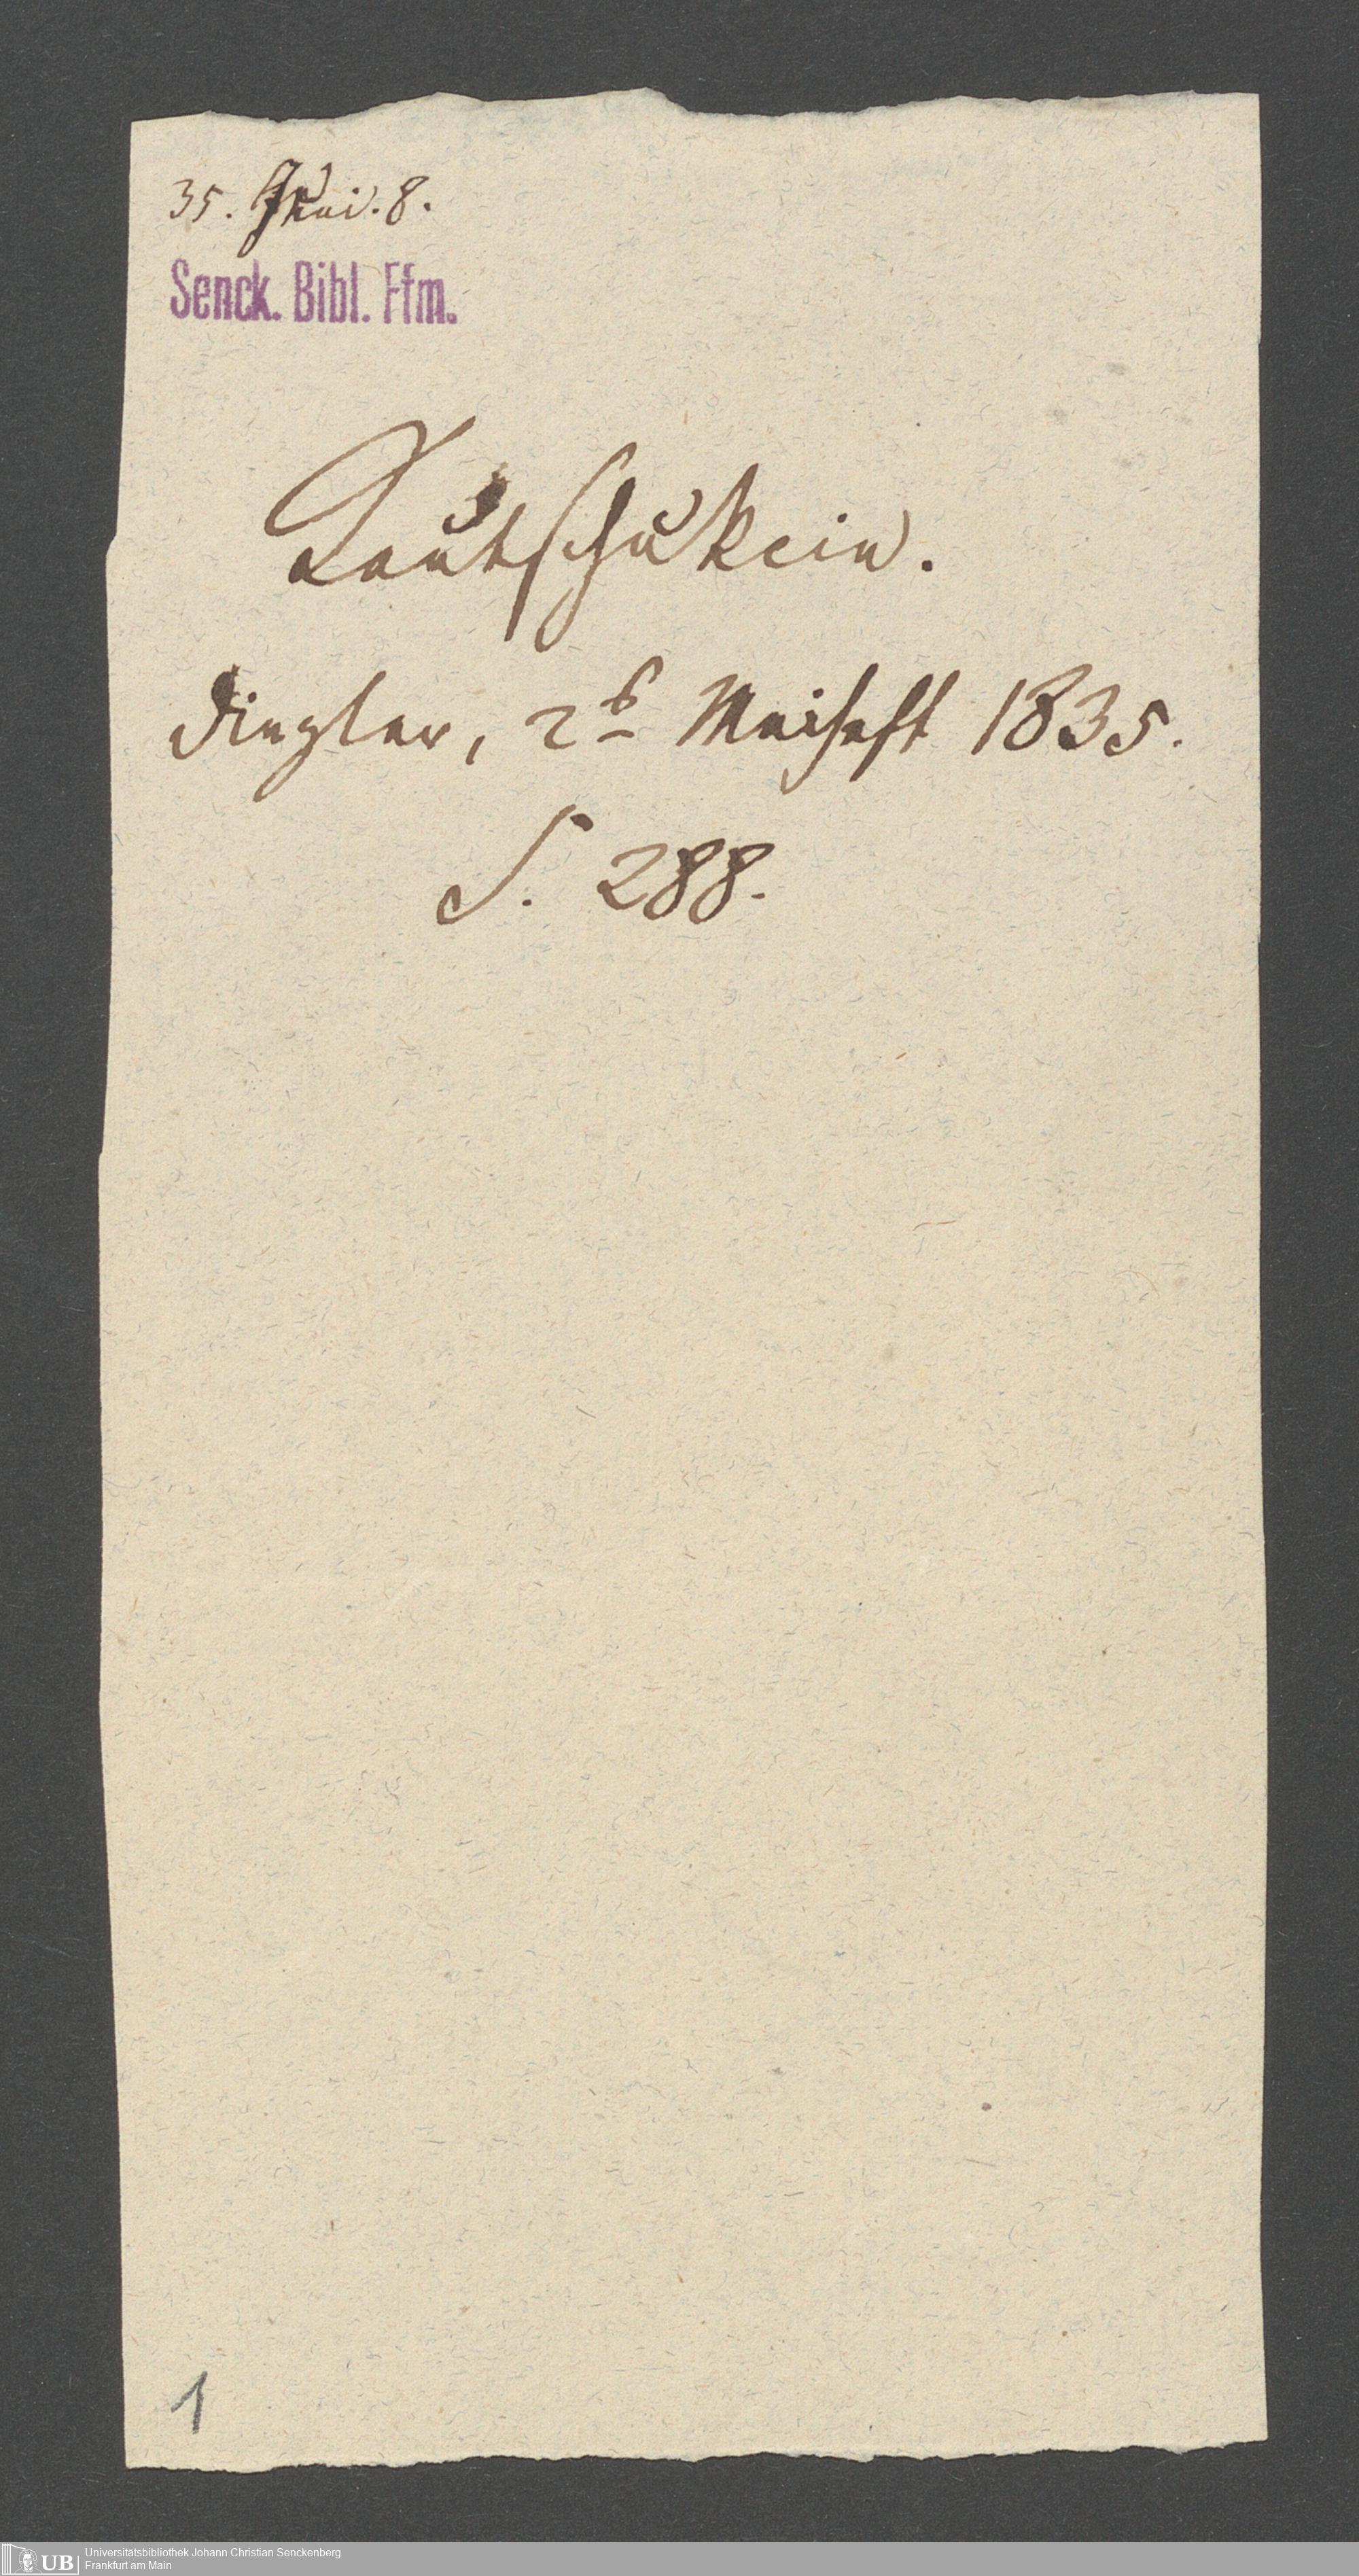 35. Juni. 8.
Senck. Bibl. Ffm.
Kautschukein.
Dingler, 2s Maiheft 1835.
S. 288.
1
UB Universitätsbibliothek Johann Christian Senckenberg
Frankfurt am Main